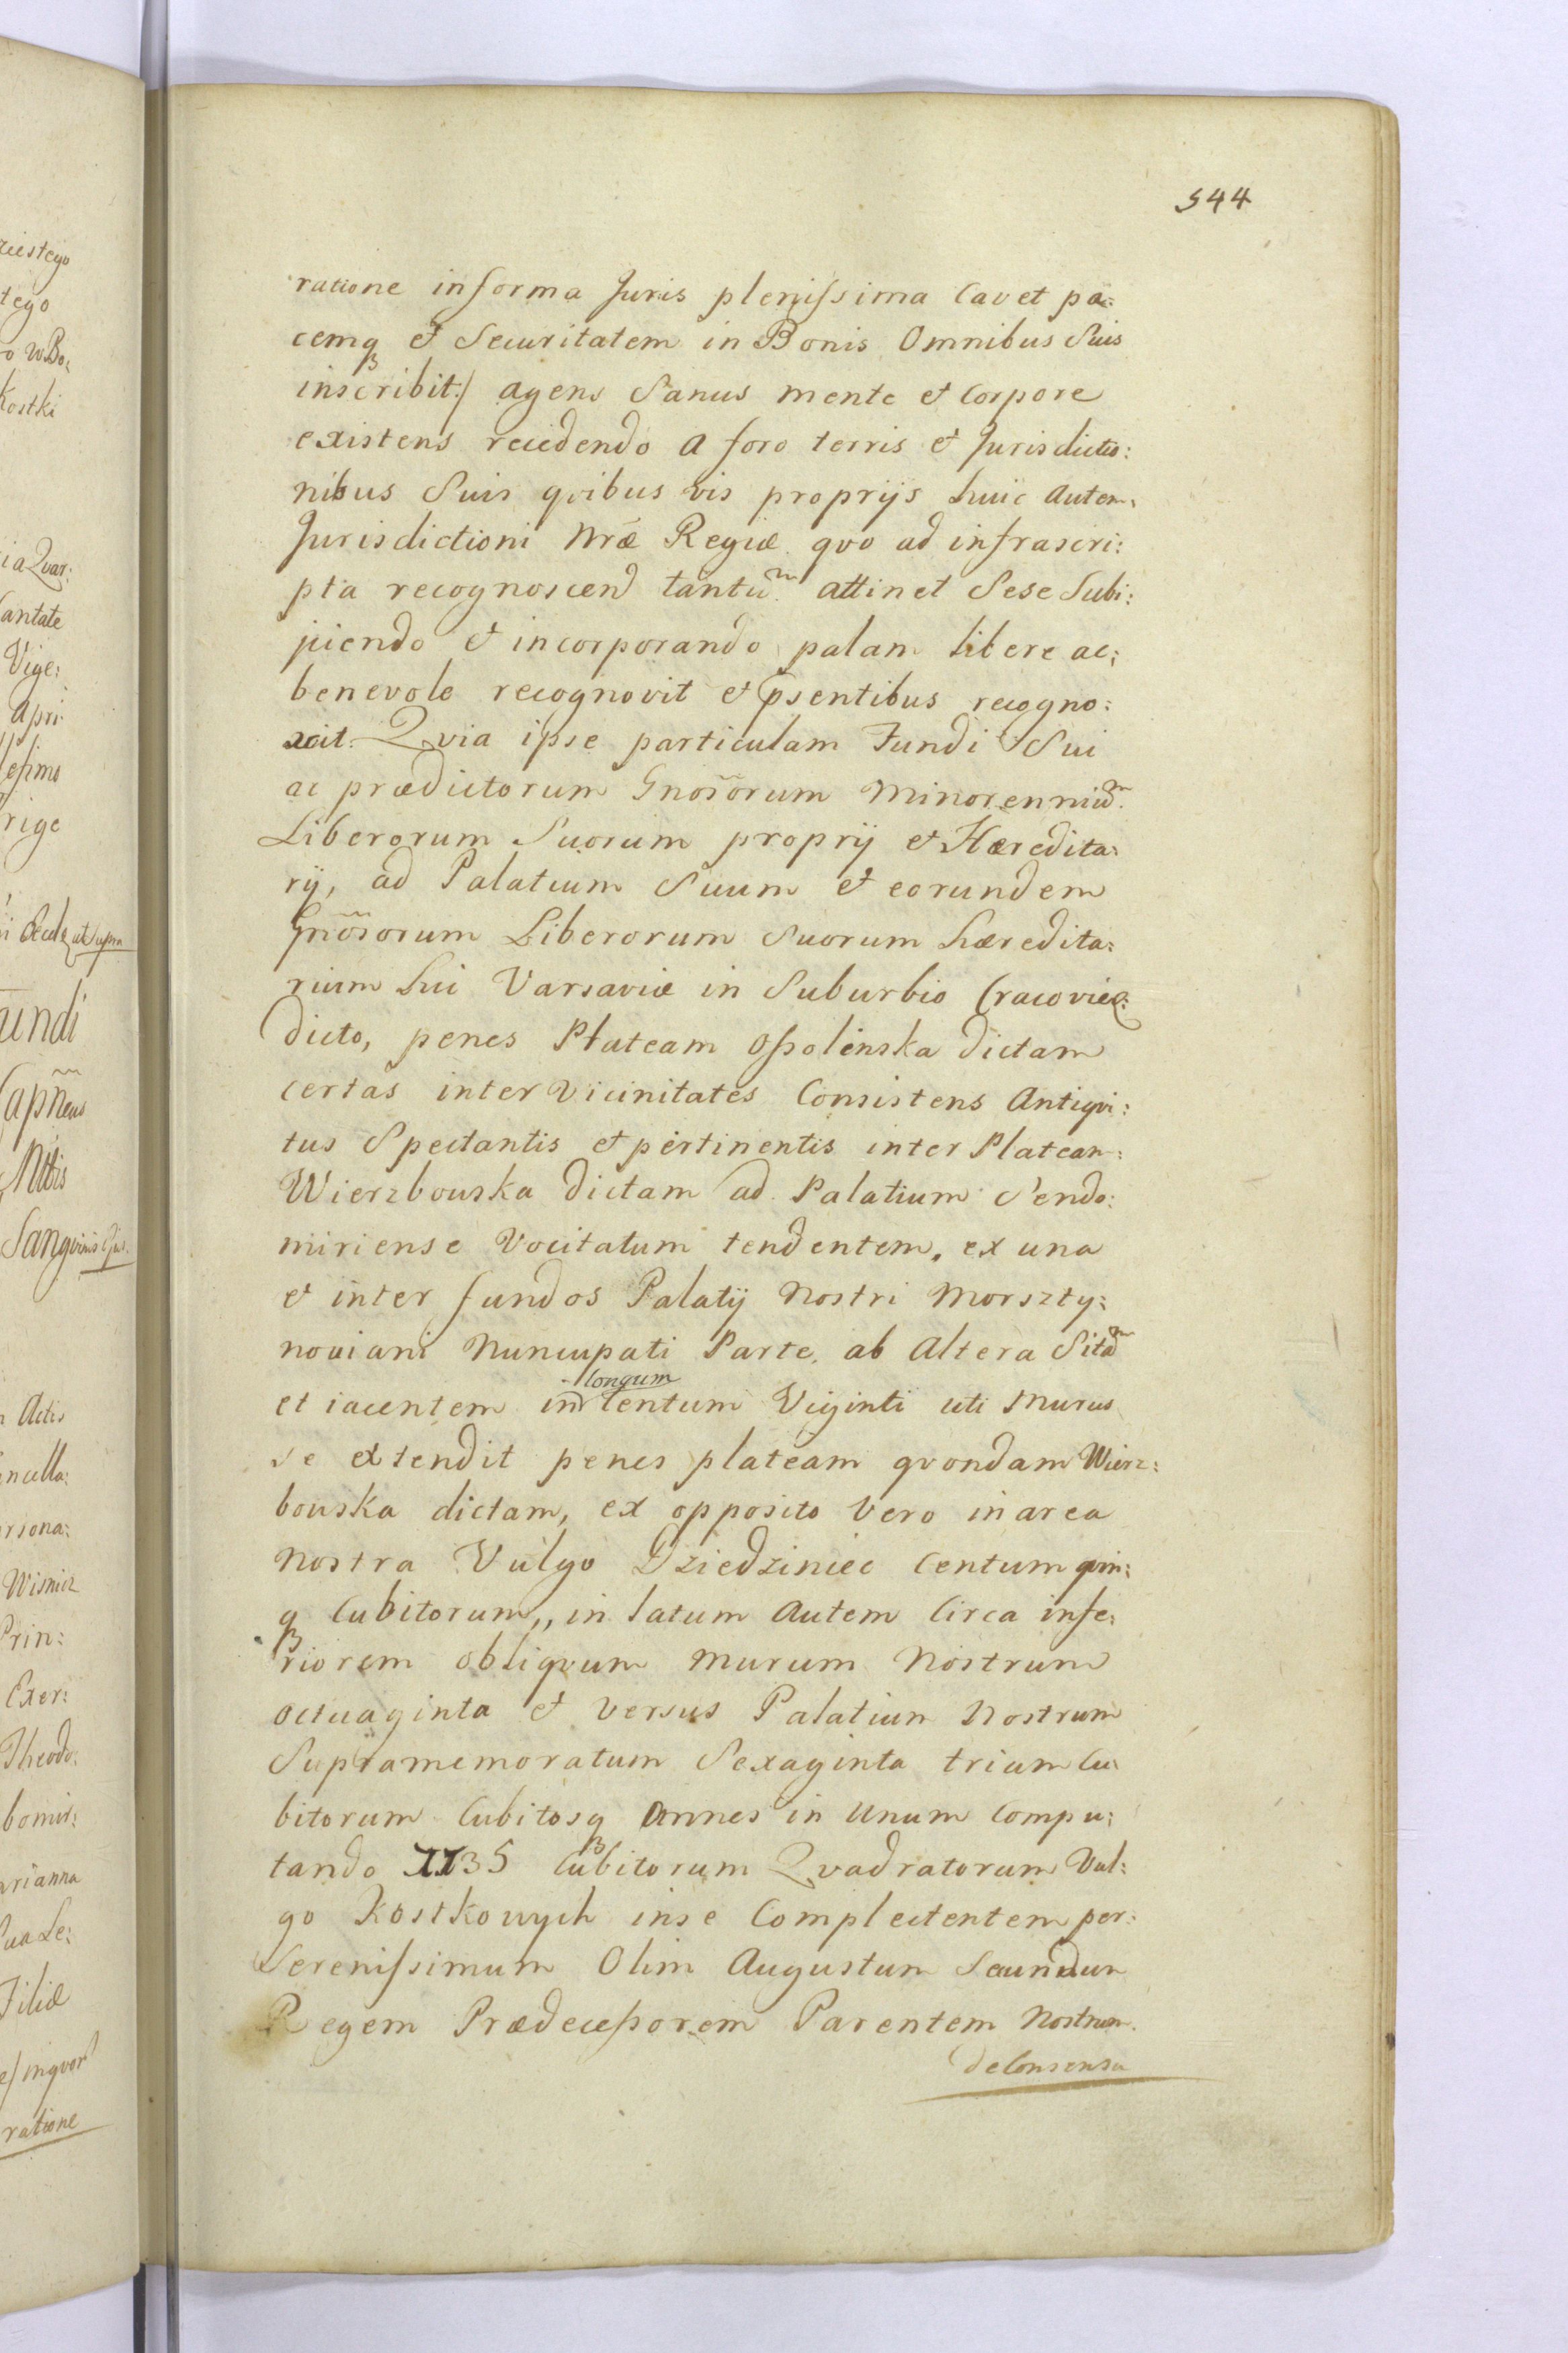 544
ratione in forma Juris plenissima Cavet pa:
cemq et Securitatem in Bonis Omnibus Suis
inscribit:/ agens Sanus mente et Corpore
existens recedendo a foro terris et Jurisdictio:
nibus Suis qvibus vis proprijs huic autem
Jurisdictioni Nræ Regiæ qvo ad infrascri:
pta recognoscend tantum attinet Sese Subi:
jiciendo et incorporando palam libere ac:
benevole recognovit et psentibus recogno:
scit. Qvia ipse particulam Fundi Sui
ac prædictorum Gnosorum Minorennium
Liberorum Suorum proprij et Hæredita:
rij, ad Palatium Suum et eorundem
Gnosorum Liberorum Suorum hæredita:
rium hui Varsaviæ in Suburbio Cracovien:
dicto, penes Plateam Ossolinska dictam
certas inter Vicinitates Consistens Antiqvi:
tus Spectantis et pertinentis inter Plateam:
Wierzbouska dictam ad Palatium Sendo:
miriense Vocitatum tendentem, ex una
et inter fundos Palatij Nostri Morszty:
noviani Nuncupati Parte, ab Altera Sitam
et iacentem in longum Centum Viginti uti Murus
se extendit penes plateam qvondam Wierz:
bouska dictam, ex opposito Vero in area
Nostra Vulgo Dziedziniec Centum qvin:
q Cubitorum,, in latum Autem Circa infe:
riorem obliqvum Murum Nostrum
Octuaginta et versus Palatium Nostrum
Supramemoratum Sexaginta trium Cu
bitorum Cubitosq Omnes in Unum Compu:
tando 7735 Cubitorum Qvadratorum Vul:
go Kostkowych inse Complectentem per:
Serenissimum Olim Augustum Secundum
Regem Prædecessorem Parentem Nostrum.
de Consensu